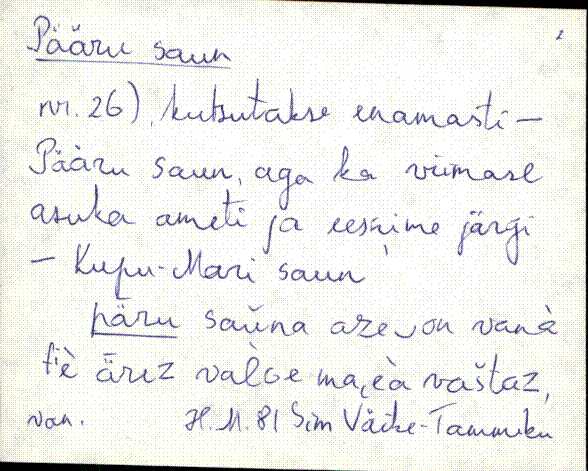 Pääru saun
nr. 26), kutsutakse enamasti –
Pääru saun, aga ka viimase
asuka ameti ja eesnime järgi
– Kupu-Mari saun
päru saŭna aze on vanà
tiè ārez vàlge maea vaštaz,
van. H. M. 81 Sim Väike-Tammiku